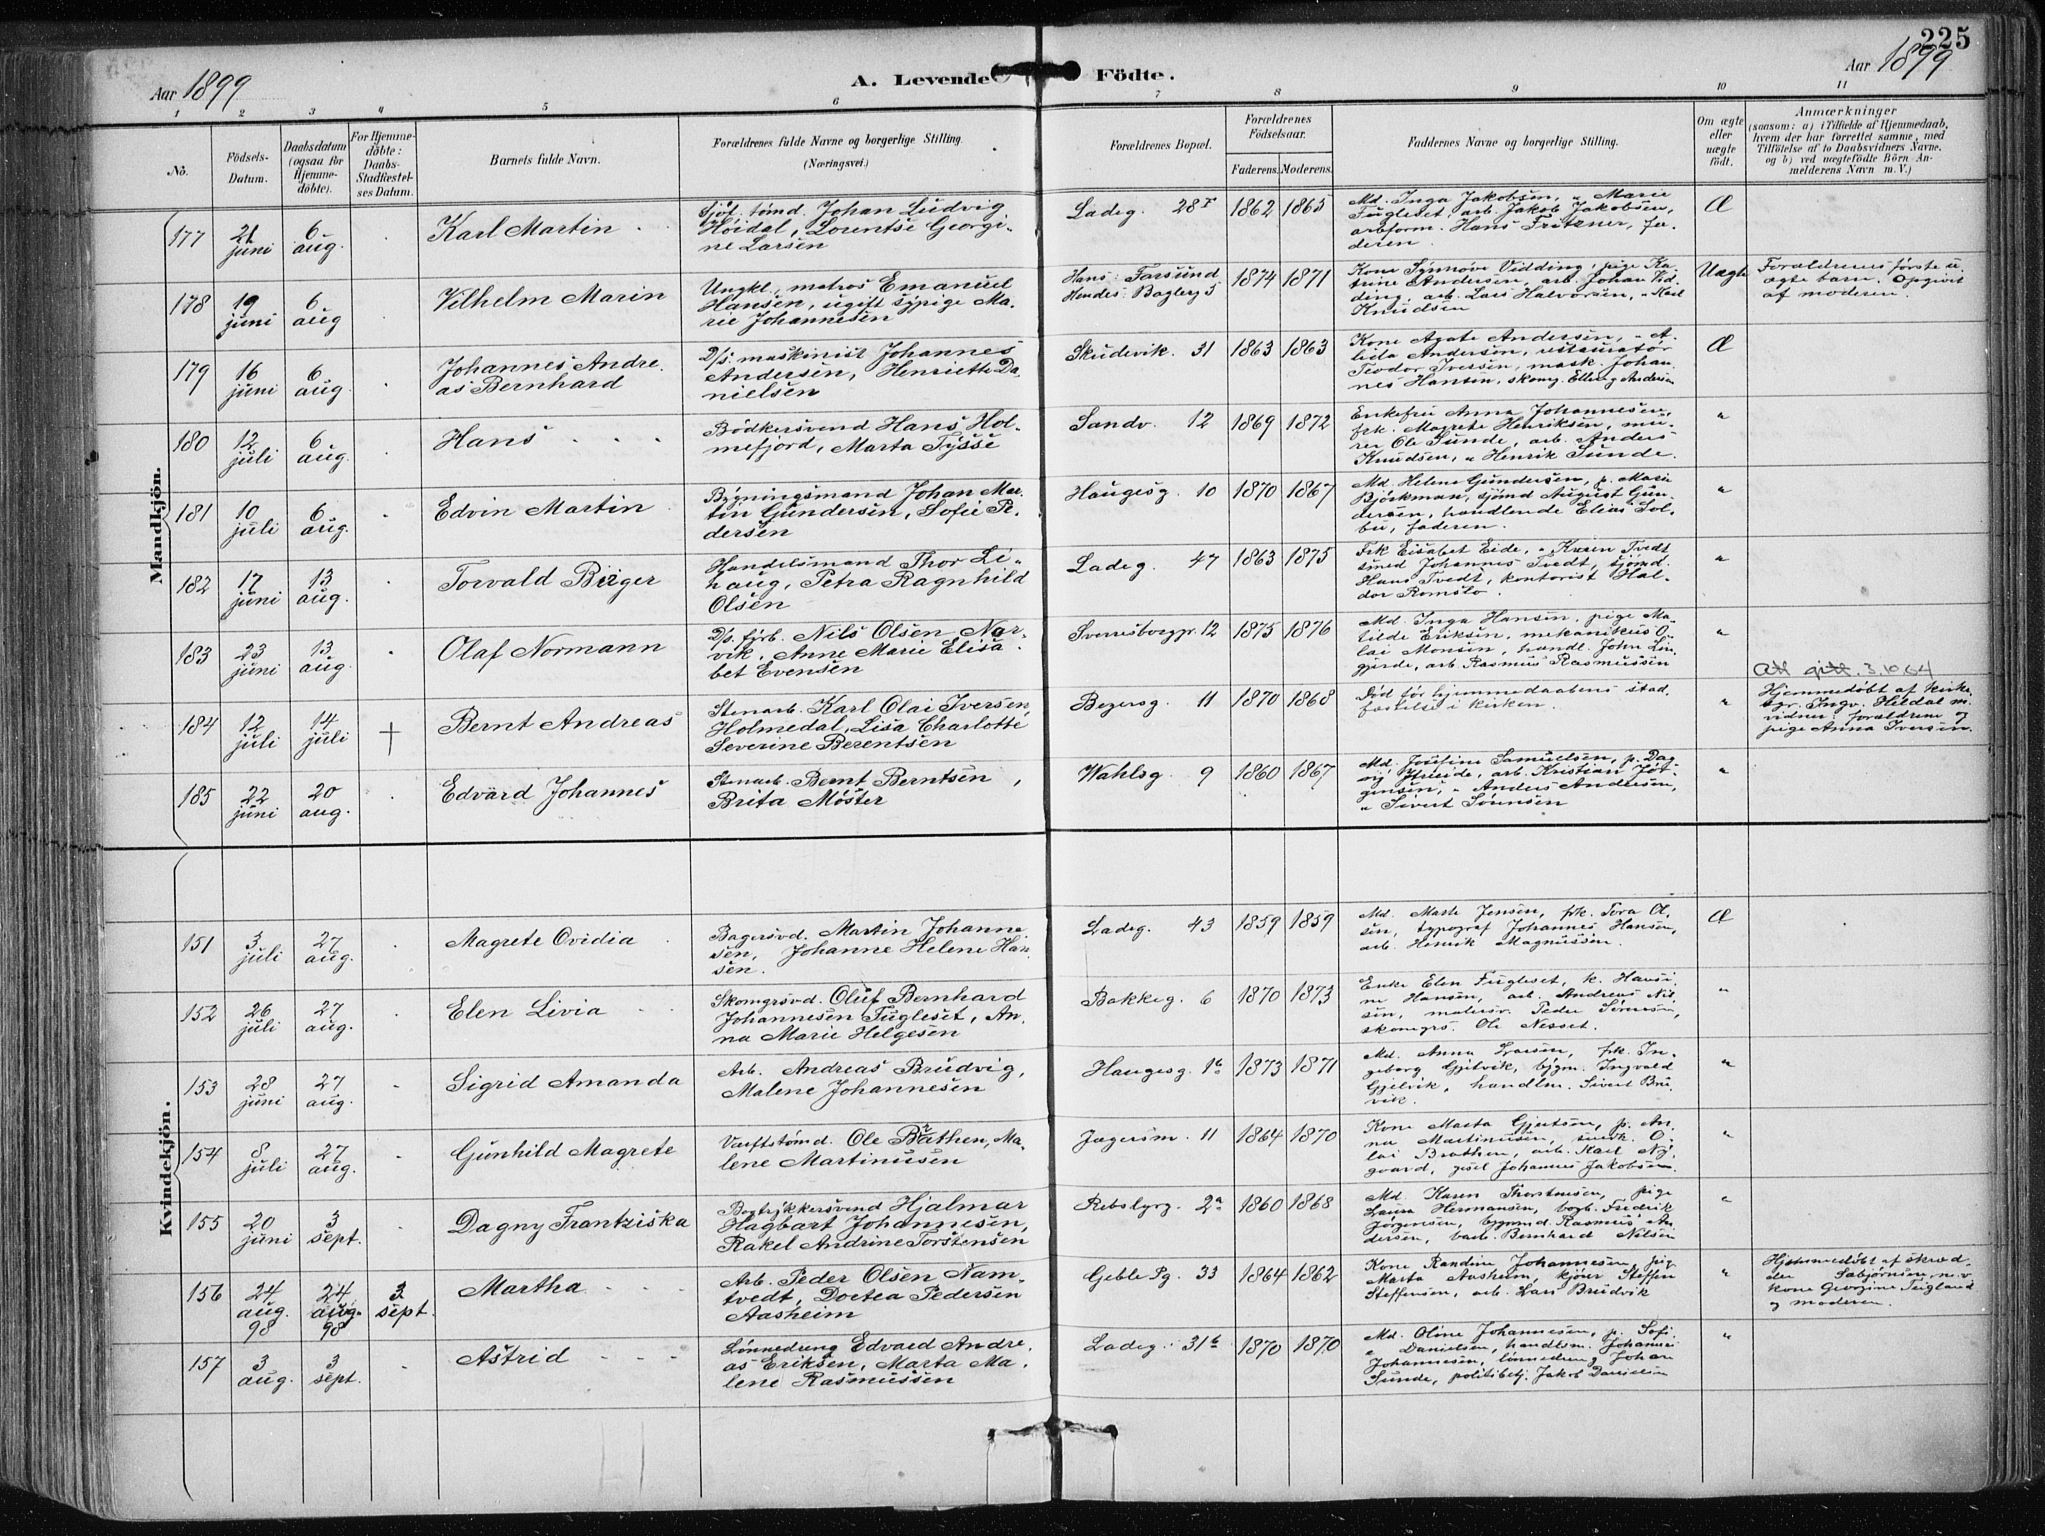 225
Aar 1899
A. Levende Födte.
Aar 1899
1 2 3 4 5 6 7 8 9 10 11
No.
Födsels-
Datum.
Daabsdatum
(ogsaa for
Hjemme-
döbte).
For Hjemme-
döbte:
Daabs-
Stadfæstel-
ses Datum.
Barnets fulde Navn.
Forældrenes fulde Navne og borgerlige Stilling.
(Næringsvei.)
Forældrenes Bopæl.
Forældrenes
Födselsaar.
Faderens. Moderens.
Faddernes Navne og borgerlige Stilling.
Om ægte
eller
uægte
födt.
Anmærkninger
(saasom: a) i Tilfælde af Hjemmedaab,
hvem der har forrettet samme, med
Tilföielse af to Daabsvidners Navne.
og b) ved uægtefödte Börn An-
melderens Navn m. V.)
Mandkjön.
177
21
juni
6
aug.
Karl Martin
Sjöf. tømd. Johan Ludvig
Høidal, Lourntse Georgi-
ne Larsen
Ladeg. 28
1862 1865
Md. Inga Jakobsen, " Marie
Fugleset, arb. Jakob Jakobsen,
arbform. Hans Fritzner, fa-
deren
Æ
178
19
juni
6
aug
Vilhelm Marin
Ungkl. matros Emanuel
Hansen, ugift sypige Ma-
rie Johannesen
Hans: Farsund
Hendes: Bagterg 5
1874 1871
Kone Synnøve Vidding, pige Ka-
trine Andersen, arb. Johan Vid-
ding, arb. Lars Halvorsen, " Karl
Knudsen
Uægte
Forældrenes første u-
ægte barn. Opgivet
af moderen.
179
16
juni
6
aug.
Johannes Andre-
as Bernhard
D/s. maskinist Johannes
Andersen, Henriette Da-
nielsen
Skudevik. 31
1863 1863
Kone Agate Andersen, " A-
lida Andersen, restauratør
Teodor Ivessen, mask. Johan-
nes Hansen, skomg. Elling Andersen
Æ
180
12
juli
6
aug.
Hans
Bødkersvend Hans Hol-
mefjord, Marta Tysse
Sandv. 12
1869 1872
Enkefru Anna Johannesen,
frk. Magrete Henriksen, mu-
rer Ole Sunde, arb. Anders
Knudsen, " Henrik Sunde.
"
181
10
juli
6
aug.
Edvin Martin
Bygningsmand Johan Mar-
tin Gundersen, Sofie Pe-
dersen
Haugesg. 10
1870 1867
Md. Helene Gundersen, p. Marie
Bjørkman, sjømd August Gun-
dersen, handlende Elias Sol-
bu, faderen.
"
182
17
juni
13
aug.
Torvald Birger
Handelsmand Thor Li-
haug, Petra Ragnhild
Olsen
Ladeg. 47
1863 1875
Frk Elsabet Eide, " Karen Tvedt,
smed Johannes Tvedt, sjømd.
Hans Tvedt, kontorist Hal-
dor Romslo.
"
183
23
juni
13
aug.
Olaf Normann
D/s. fyrb. Nils Olsen Nor-
vik, Anne Marie Elisa-
bet Evensen
Sverresborggr. 12
1875 1876
Md. Inga Hansen, pige Ma-
tilde Eriksen, mekanikus O-
lai Monsen, handl. John Lin-
gjerde, arb. Rasmus Rasmussen
"
Att gitt. 3.10.64
184
12
juli
14
juli
+
Bernt Andreas
Stenarb. Karl Olai Iversen
Holmedal, Lisa Charlotte
Severine Berentsen
Beyersg. 11
1870 1868
Død før hjemmedaabens stad-
fæstelse i kirken.
"
Hjemmedøbt af kirke-
sgr. Ingv. Hildal m.
vidner: forældrene og
pige Anna Iversen.
185
22
juni
20
aug.
Edvard Johannes
Stenarb. Bernt Berntsen,
Brita Møster
Wahlsg. 9
1860 1867
Md. Josefine Samuelsen, p. Dag-
ny, arb. Kristian Jør-
gensen, " Anders Andersen,
" Sivert Sørensen
"
Kvindekjön.
151
3
juli
27
aug.
Magrete Ovidia
Bagersvd. Martin Johanne-
sen, Johanne Helene Han-
sen.
Ladeg. 43
1859 1859
Md. Marte Jensen, frk. Tora Ol-
sen, typograf Johannes Hansen,
arb. Henrik Magnussen.
Æ
152
26
juli
27
aug.
Elen Livia
Skomgrsvd. Oluf Bernhard
Johannesen Fugleset, An-
na Marie Helgesen
Bakkeg. 6
1870 1873
Enke Elen Fugleset, k. Hansi-
ne Hansen, arb. Andreas Nil-
sen, malersv. Peder Sørensen,
skomgrs. Ole Nesset.
"
153
28
juni
27
aug.
Sigrid Amanda
Arb. Andreas Brudvig,
Malene Johannesen
Haugesg. 1b
1873 1871
Md. Anna Larsen, frk. In-
geborg Gjelvik, bygm. Ingvald
Gjelvik, handlsm. Sivert Bru-
vik.
"
154
8
juli
27
aug.
Gunhild Magrete
Værftstømd. Ole Bräthen, Ma-
lene Martinusen
Jægersm. 11
1864 1870
Kone Marta Gjertsen, p. An-
na Martinusen, snedk. O-
lai Brathen, arb. Karl Ny-
gaard, gjest Johannes Jakobsen.
"
155
20
juni
3
sept.
Dagny Frantziska
Bogtrykkersvend Hjalmar
Hagbart Johannesen,
Rakel Andrine Torstensen
Rebslyrg. 2a
1860 1868
Md. Karen Thorstensen, pige
Laura Hermansen, bogb. Fredrik
Jørgensen, bygnmd. Rasmus An-
dersen, barb. Bernhard Nilsen
"
156
24
aug.
98
24
aug.
98
3
sept.
Martha
Arb. Peder Olsen Nam-
tvedt, Dortea Pedersen
Aasheim
Geble Pg. 33
1864 1862
Kone Randine Johannesen, pig.
Marta Aasheim, kjører Steffen
Steffensen, arb. Lars Brudvik
"
Hjemmedøbt af skræd-
der Sabjørnsen, m. v.
kone Georgine Tugland
og moderen.
157
3
aug.
3
sept.
Astrid
Lønnedreng Edvard Andre-
as Eriksen, Marta Ma-
lene Rasmussen
Ladeg. 31b
1870 1870
Md. Oline Johannesen, p. Sofi-
e Danielsen, handlsm. Johannes
Johannesen, lønnedreng Johan
Sunde, politibetj. Jakob Danielsen
"